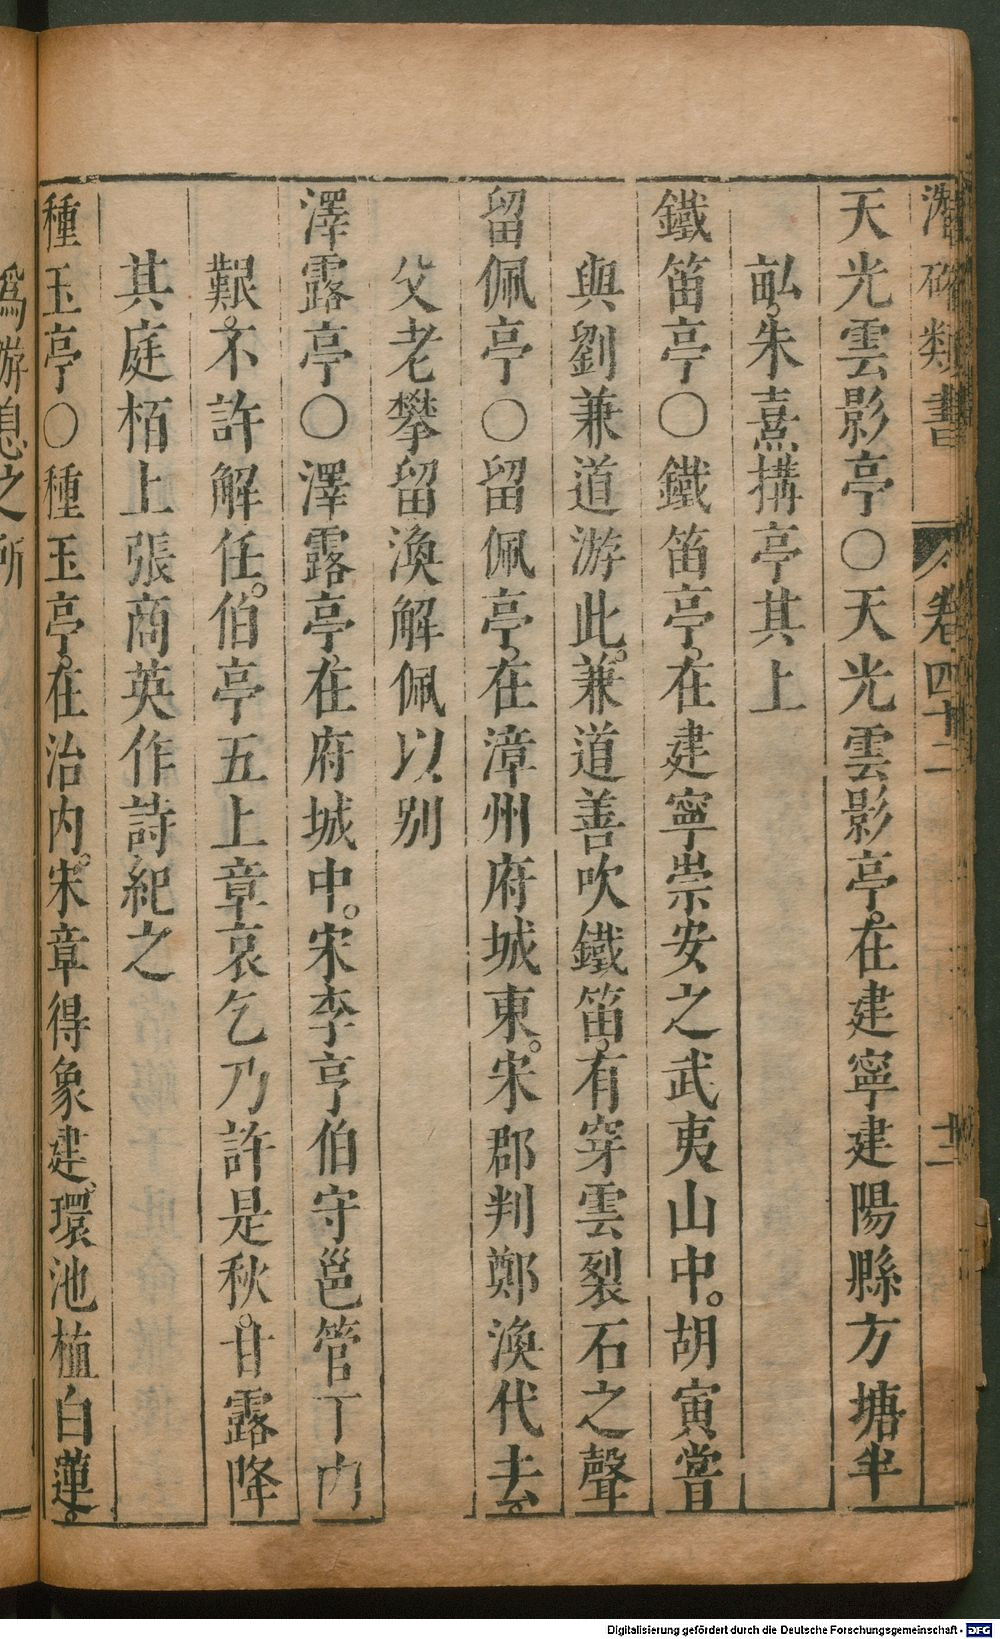 潛確類書　卷四十二　十二
天光雲影亭○天光雲影亭。在建寧建陽縣方塘半
畆。朱熹搆亭其上
鐵笛亭○鐵笛亭。在建寧崇安之武夷山中。胡寅嘗
與劉兼道游此。兼道善吹鐵笛。有穿雲裂石之聲
留佩亭○留佩亭。在漳州府城東。宋郡判鄭渙代去。
父老攀留渙解佩以别
澤露亭○澤露亭。在府城中。宋李亨伯守邕管丁内
艱。不許解任。伯亭五上章哀乞乃許是秋。甘露降
其庭栢上張商英作詩紀之
種玉亭○種玉亭。在治内。宋章得象建。環池植白蓮。
爲游息之所
Digitalisierung gefördert durch die Deutsche Forschungsgemeinschaft - DFG